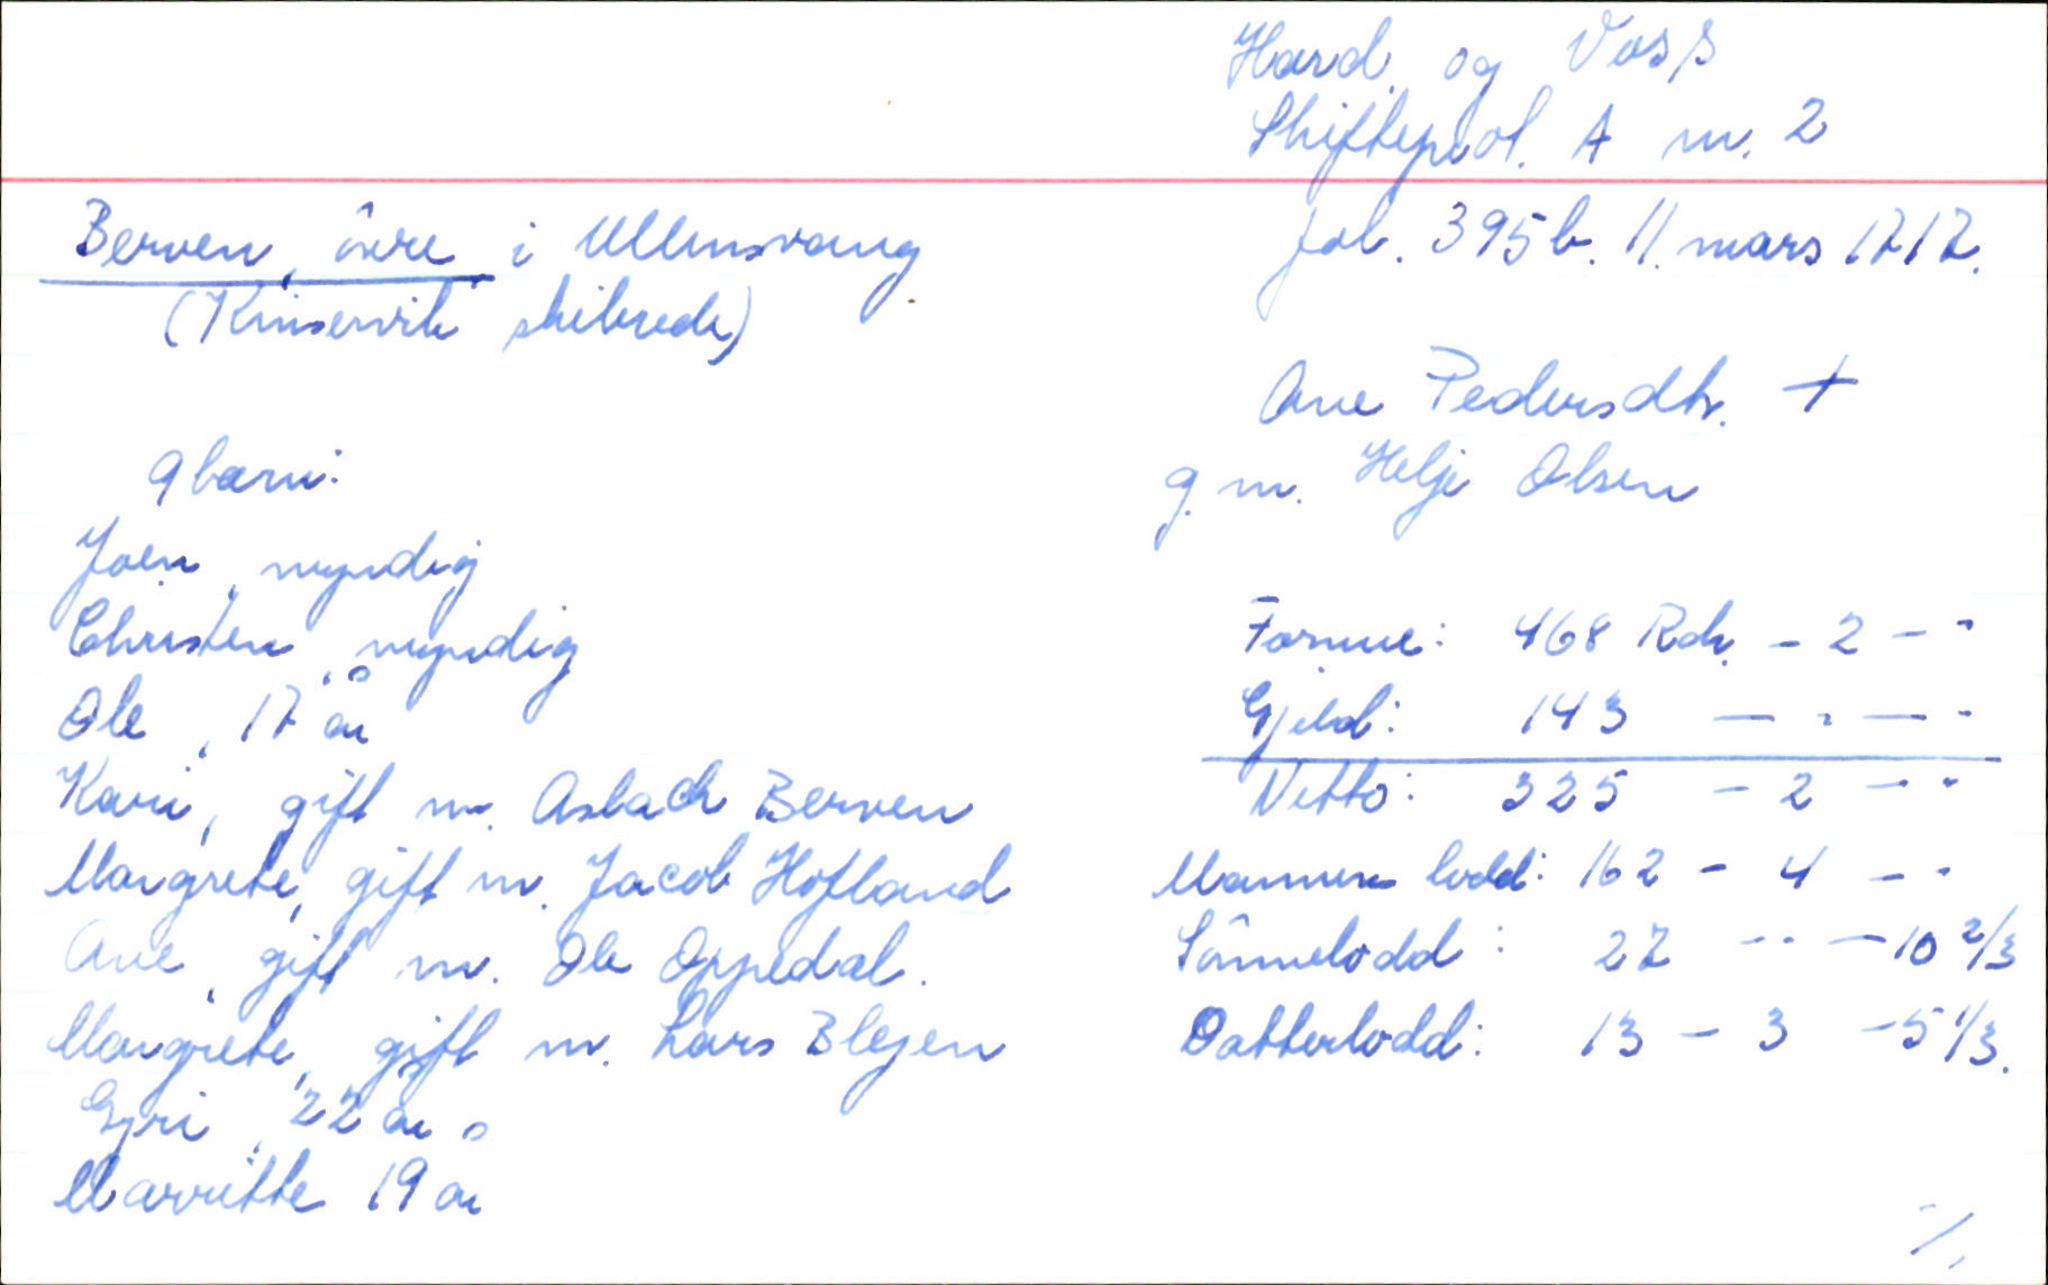 Hard. og Voss
Skifteprot. A nr. 2
fol. 395b. 11. mars 1717.
Berven, övre i Ullensvang
(Kinservik skibrede)
Ane Pedersdtr. +
g. m. Helje Olsen
9 barn:
Joen, myndig
Christen, myndig
Ole, 17 år
Kari, gift m. Aslach Berven
Margrete, gift m. Jacob Hofland
Ane, gift m. Ole Oppedal.
Margrete, gift m. Lars Blejen
Gyri, 22 år
Marritte 19 år
Formue: 468 Rdr. - 2 - "
Gjeld: 143 - " - "
Netto: 325 - 2 - "
Mannens lodd: 162 - 4 - "
Sönnelodd: 27 - " - 10 2/3
Datterlodd: 13 - 3 - 5 1/3.